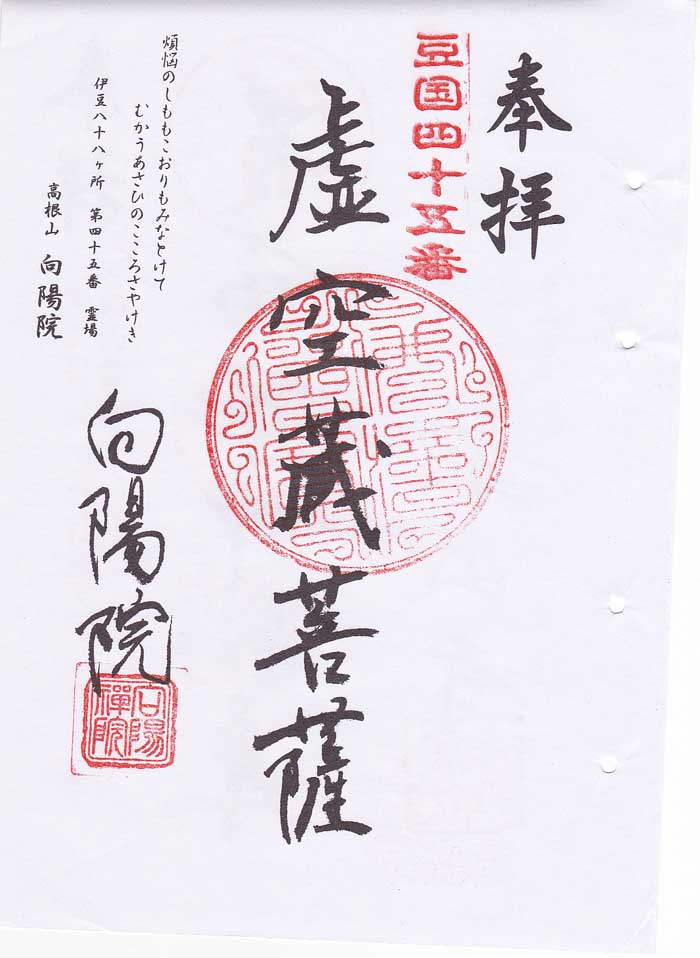 奉拝
豆国四十五番
虚空蔵菩薩
煩悩のしももこおりもみなとけて
むかうあさひのこころさやけき
伊豆八十八ヶ所 第四十五番 霊場
高根山 向陽院
向陽院
向陽禅院